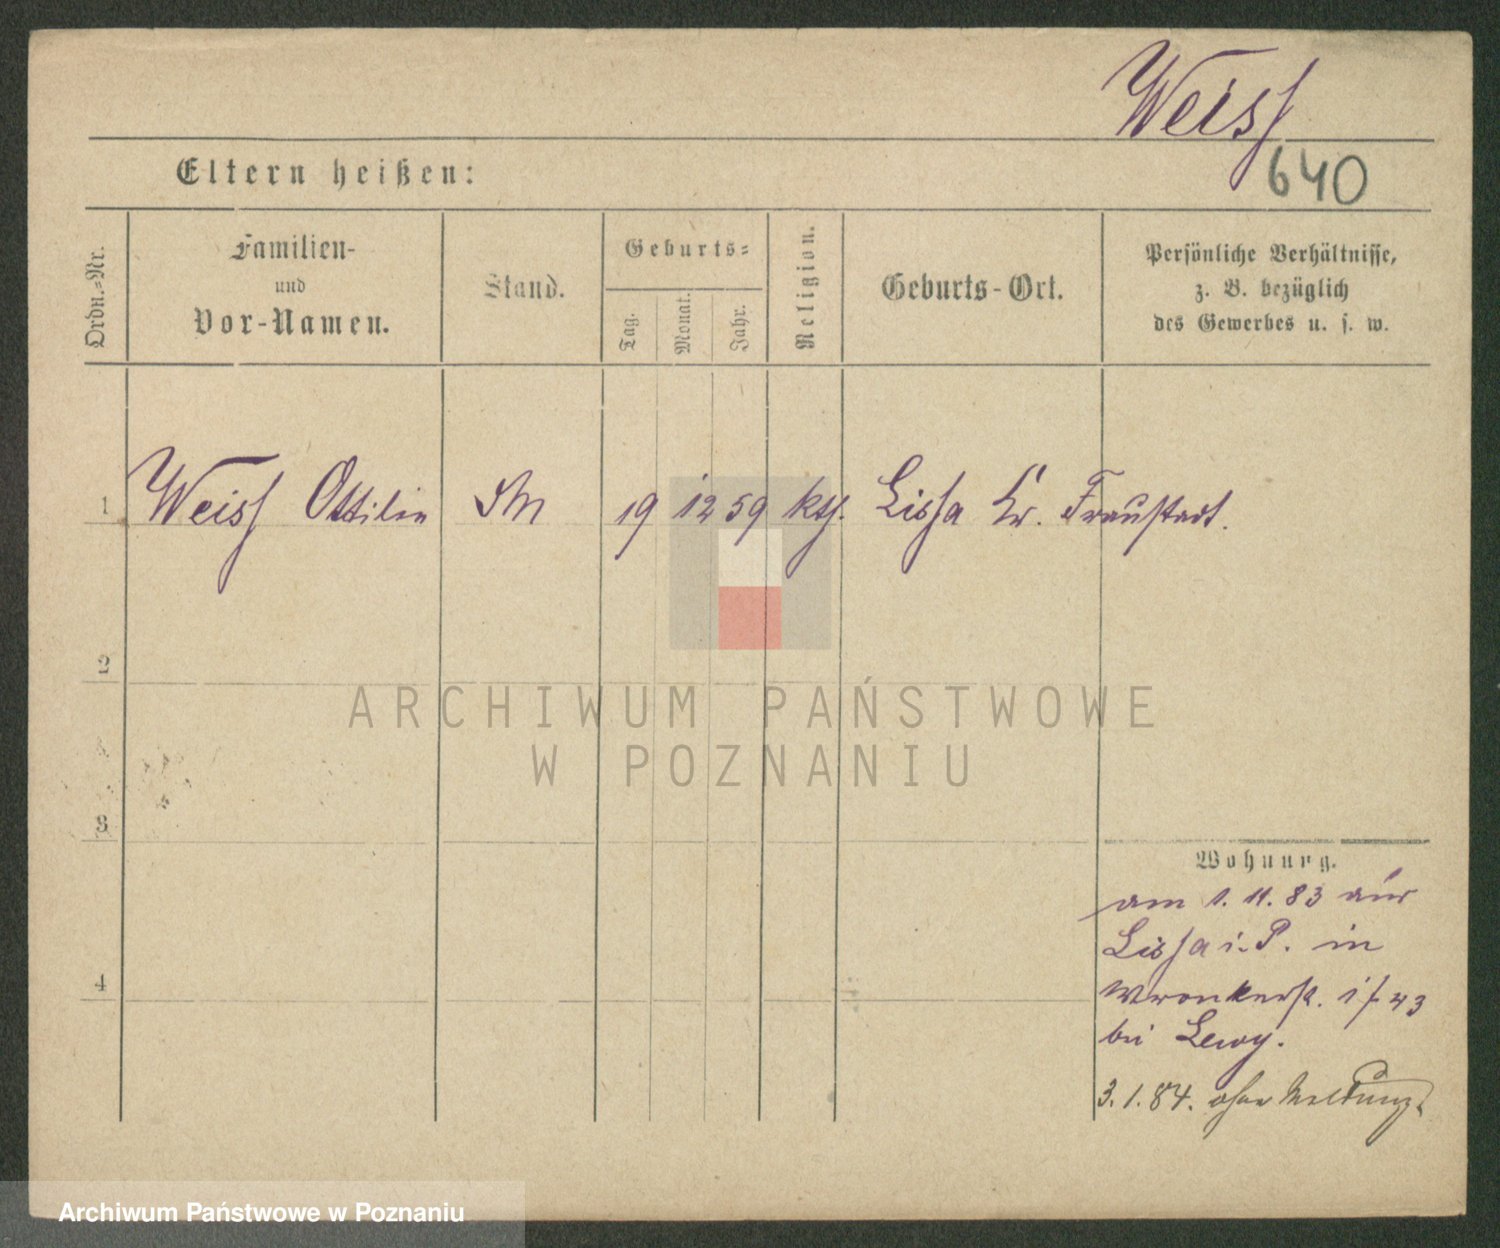 Weiss
640
Eltern heißen:
Ordn.-Nr.
Familien-
und
Vor-Namen.
Stand.
Geburts-
Tag.
Monat.
Jahr.
Religion.
Geburts-Ort.
Persönliche Verhältnisse,
z. B. bezüglich
des Gewerbes u. s. w.
1 Weiss Ottilie 19 12 59 kth. Lissa Kr. Fraustadt.
2
3
4
Wohnung.
am 1. 11. 83 aus
Lissa i. P. in
Wronkerstr.
bei Lewy.
3.1.84. ohne Meldung
ARCHIWUM PAŃSTWOWE
W POZNANIU
Archiwum Państwowe w Poznaniu